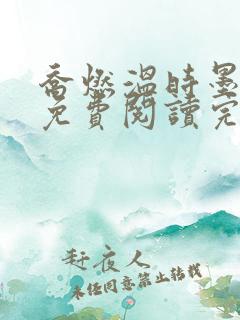 喬燃溫時墨
免費閱讀完
赶夜人
未经同意禁止转载